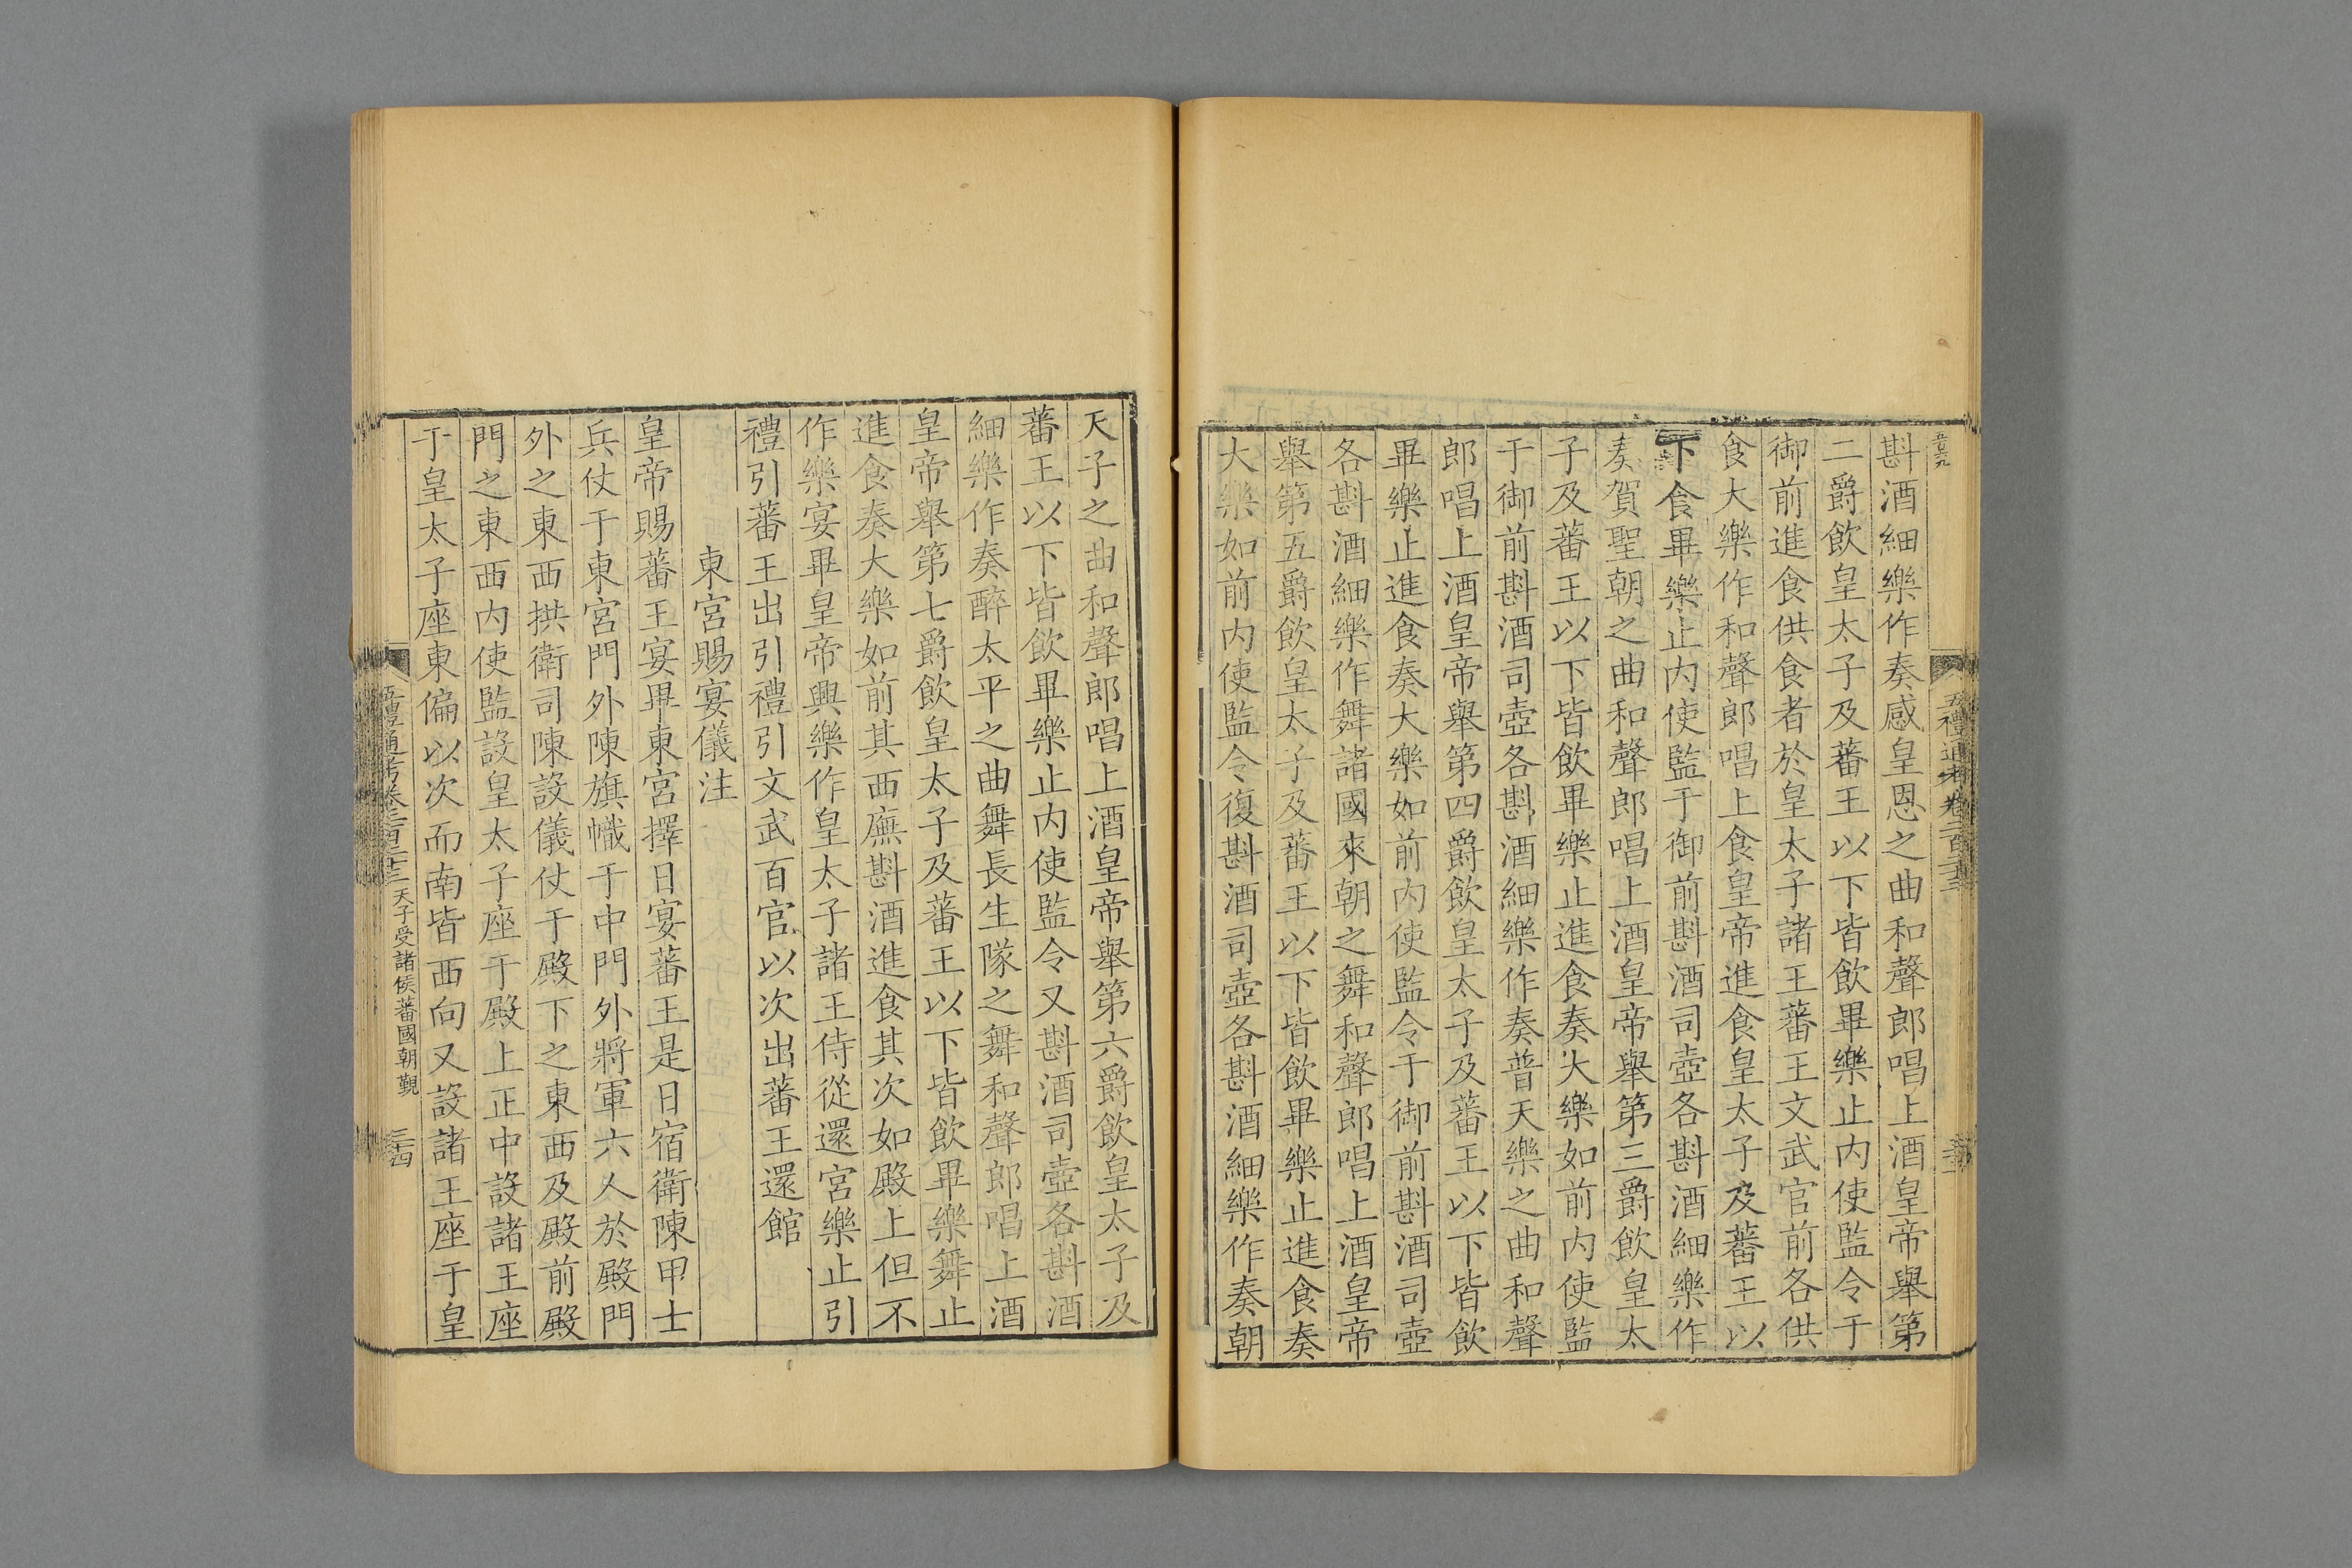 斟酒細樂作奏感皇恩之曲和聲郎唱上酒皇帝舉第
二爵飲皇太子及蕃王以下皆飲畢樂止内使監令于
御前進食供食者於皇太子諸王蕃王文武官前各供
食大樂作和聲郎唱上食皇帝進食皇太子及蕃王以
下食畢樂止内使監于御前斟酒司壺各斟酒細樂作
奏賀聖朝之曲和聲郎唱上酒皇帝舉第三爵飲皇太
子及蕃王以下皆飲畢樂止進食奏大樂如前内使監
于御前斟酒司壺各斟酒細樂作奏普天樂之曲和聲
郎唱上酒皇帝舉第四爵飲皇太子及蕃王以下皆飲
畢樂止進食奏大樂如前内使監令于御前斟酒司壺
各斟酒細樂作舞諸國來朝之舞和聲郎唱上酒皇帝
舉第五爵飲皇太子及蕃王以下皆飲畢樂止進食奏
大樂如前内使監令復斟酒司壺各斟酒細樂作奏朝
天子之曲和聲郎唱上酒皇帝舉第六爵飲皇太子及
蕃王以下皆飲畢樂止内使監令又斟酒司壺各斟酒
細樂作奏醉太平之曲舞長生隊之舞和聲郎唱上酒
皇帝舉第七爵飲皇太子及蕃王以下皆飲畢樂舞止
進食奏大樂如前其西廡斟酒進食其次如殿上但不
作樂宴畢皇帝興樂作皇太子諸王侍從還宮樂止引
禮引蕃王出引禮引文武百官以次出蕃王還館
東宮賜宴儀注
皇帝賜蕃王宴畢東宮擇日宴蕃王是日宿衛陳甲士
兵仗于東宮門外陳旗幟于中門外將軍六人於殿門
外之東西拱衛司陳設儀仗于殿下之東西及殿前殿
門之東西内使監設皇太子座于殿上正中設諸王座
于皇太子座東偏以次而南皆西向又設諸王座于皇
五禮通考卷二百二十二 天子受諸侯蕃國朝覲 三十四